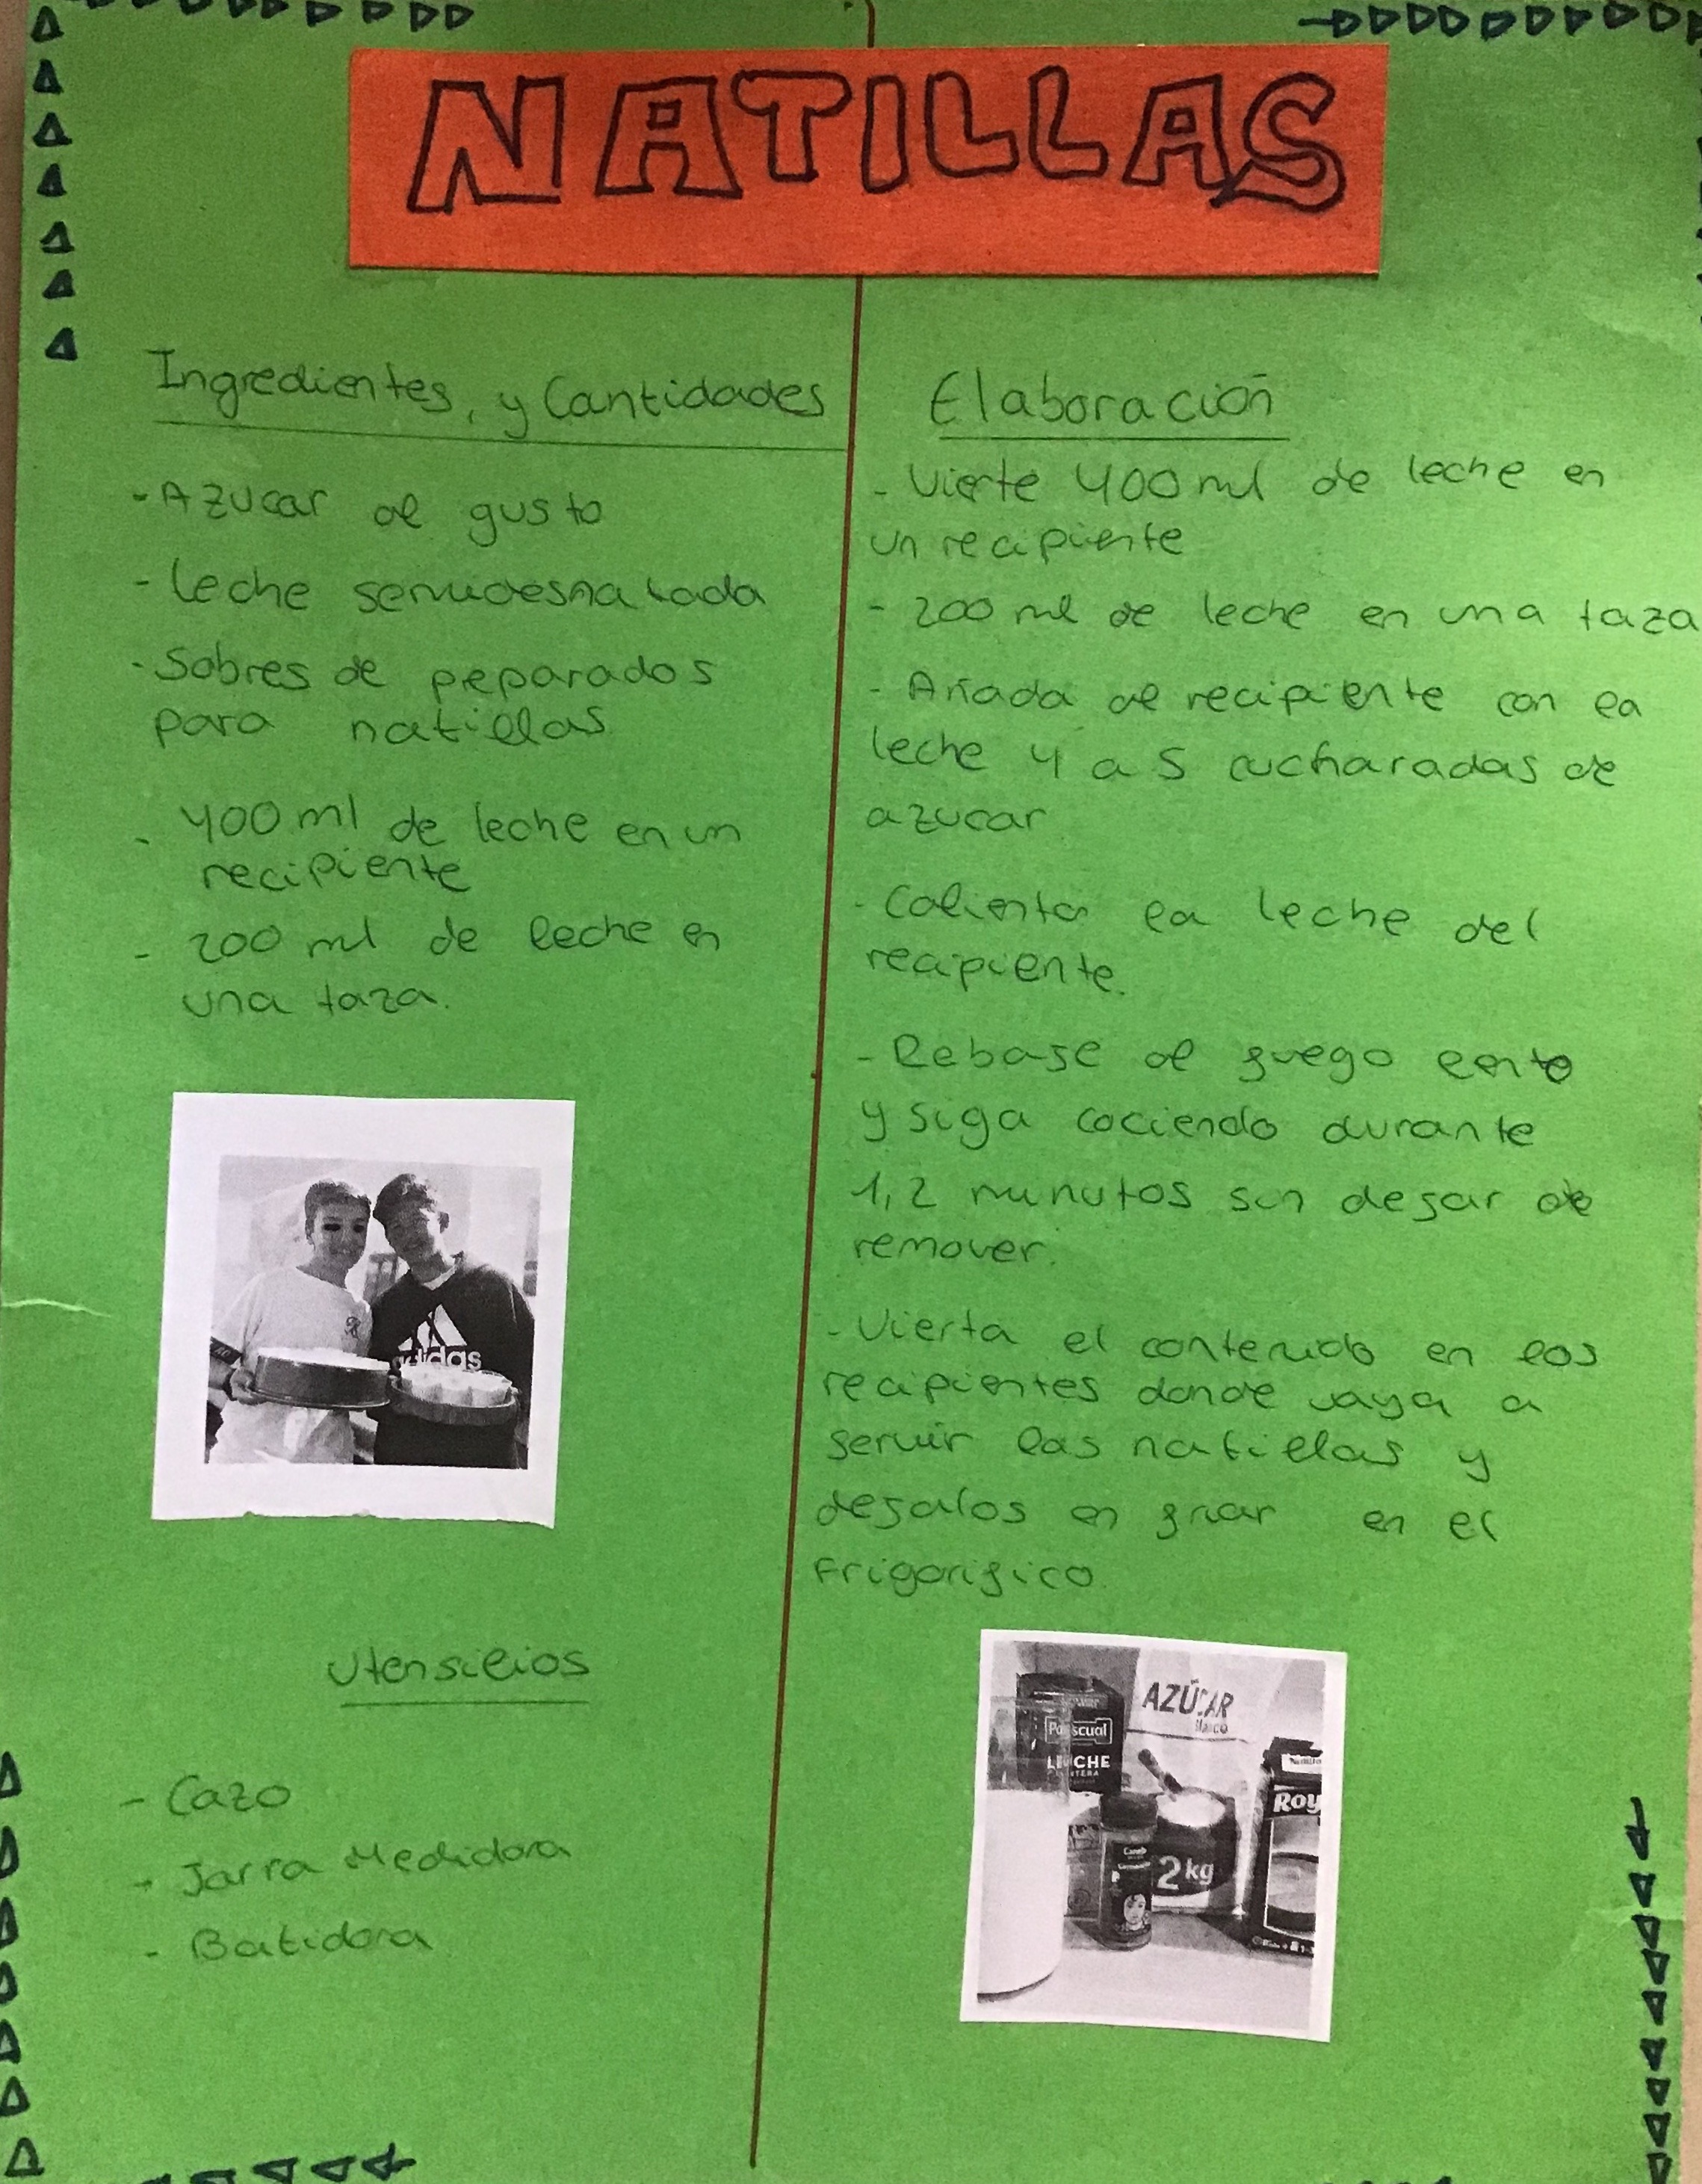 NATILLAS
Ingredientes, y Cantidades
- Azucar al gusto
- Leche semidesnatada
- Sobres de peparados
para natillas
- 400 ml de leche en un
recipiente
- 200 ml de leche en
una taza.
adidas
Utensilios
- Cazo
- Jarra Medidora
- Batidora
Elaboración
- Vierte 400 ml de leche en
un recipiente
- 200 ml de leche en una taza
- Añada al recipiente con la
leche 4 a 5 cucharadas de
azucar
- Calienta la leche del
recipiente.
- Rebase al fuego lento
y siga cociendo durante
1,2 minutos sin dejar de
remover.
- Vierta el contenido en los
recipientes donde vaya a
servir las natillas y
dejalos en friar en el
Frigorifico.
AZÚCAR
Blanco
Pascual
LECHE
ENTERA
Roy
2 kg